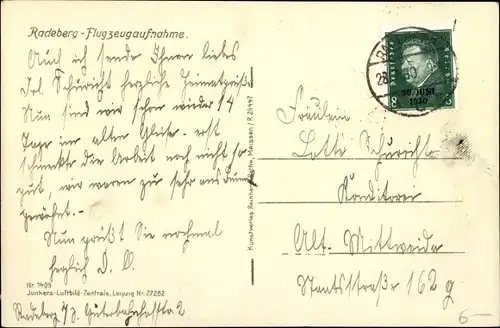 Radeberg - Flugzeugaufnahme.
Auch ich sende Ihnen liebes
Frl. Schuricht herzliche Heimatgrüße!
Nun sind wir schon wieder 14
Tage im alten Gleise. - erst
schmeckte die Arbeit noch nicht so
gut, wir waren zu sehr ans
gewöhnt. -
Nun grüßt Sie nochmal
herzlich
Nr. 1409
Junkers-Luftbild-Zentrale, Leipzig Nr. 27262
Radeberg i/S. Güterbahnhofstr. 2
Kunstverlag Reinhard Rothe, Meissen
30. JUNI
1930
8
8
Fräulein
Lotti Schuricht
Konditorei
Alt-Mittweida
Staatsstraße 162 g
6-